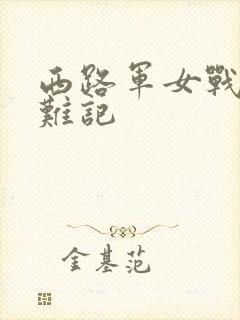 西路軍女戰
難記
金基范